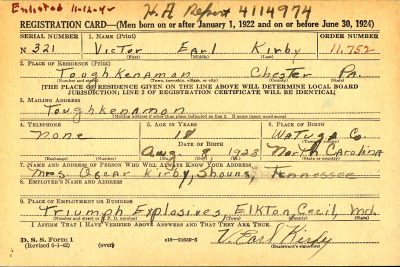 Enlisted 11-12-42 H.A. Report 4114974
REGISTRATION CARD—(Men born on or after January 1, 1922 and on or before June 30, 1924)
SERIAL NUMBER 1. NAME (Print) ORDER NUMBER
N 321 Victor Earl Kirby 11,752
(First) (Middle) (Last)
2. PLACE OF RESIDENCE (Print)
Toughkenamon Chester Pa.
(Number and street) (Town, township, village, or city) (County) (State)
[THE PLACE OF RESIDENCE GIVEN ON THE LINE ABOVE WILL DETERMINE LOCAL BOARD
JURISDICTION; LINE 2 OF REGISTRATION CERTIFICATE WILL BE IDENTICAL]
3. MAILING ADDRESS
Toughkenamon
[Mailing address if other than place indicated on line 2. If same insert word same]
4. TELEPHONE 5. AGE IN YEARS 6. PLACE OF BIRTH
None 18 Watuga Co.
DATE OF BIRTH (Town or county)
Aug 8 1923 North Carolina
(Exchange) (Number) (Mo.) (Day) (Yr.) (State or country)
7. NAME AND ADDRESS OF PERSON WHO WILL ALWAYS KNOW YOUR ADDRESS
Mrs. Oscar Kirby, Shouns, Tennessee
8. EMPLOYER'S NAME AND ADDRESS
9. PLACE OF EMPLOYMENT OR BUSINESS
Triumph Explosives Elkton, Cecil, Md.
(Number and street or R. F. D. number) (Town) (County) (State)
I AFFIRM THAT I HAVE VERIFIED ABOVE ANSWERS AND THAT THEY ARE TRUE.
D. S. S. Form 1
(Revised 6-9-41) (over) V. Earl Kirby
(Registrant's signature)